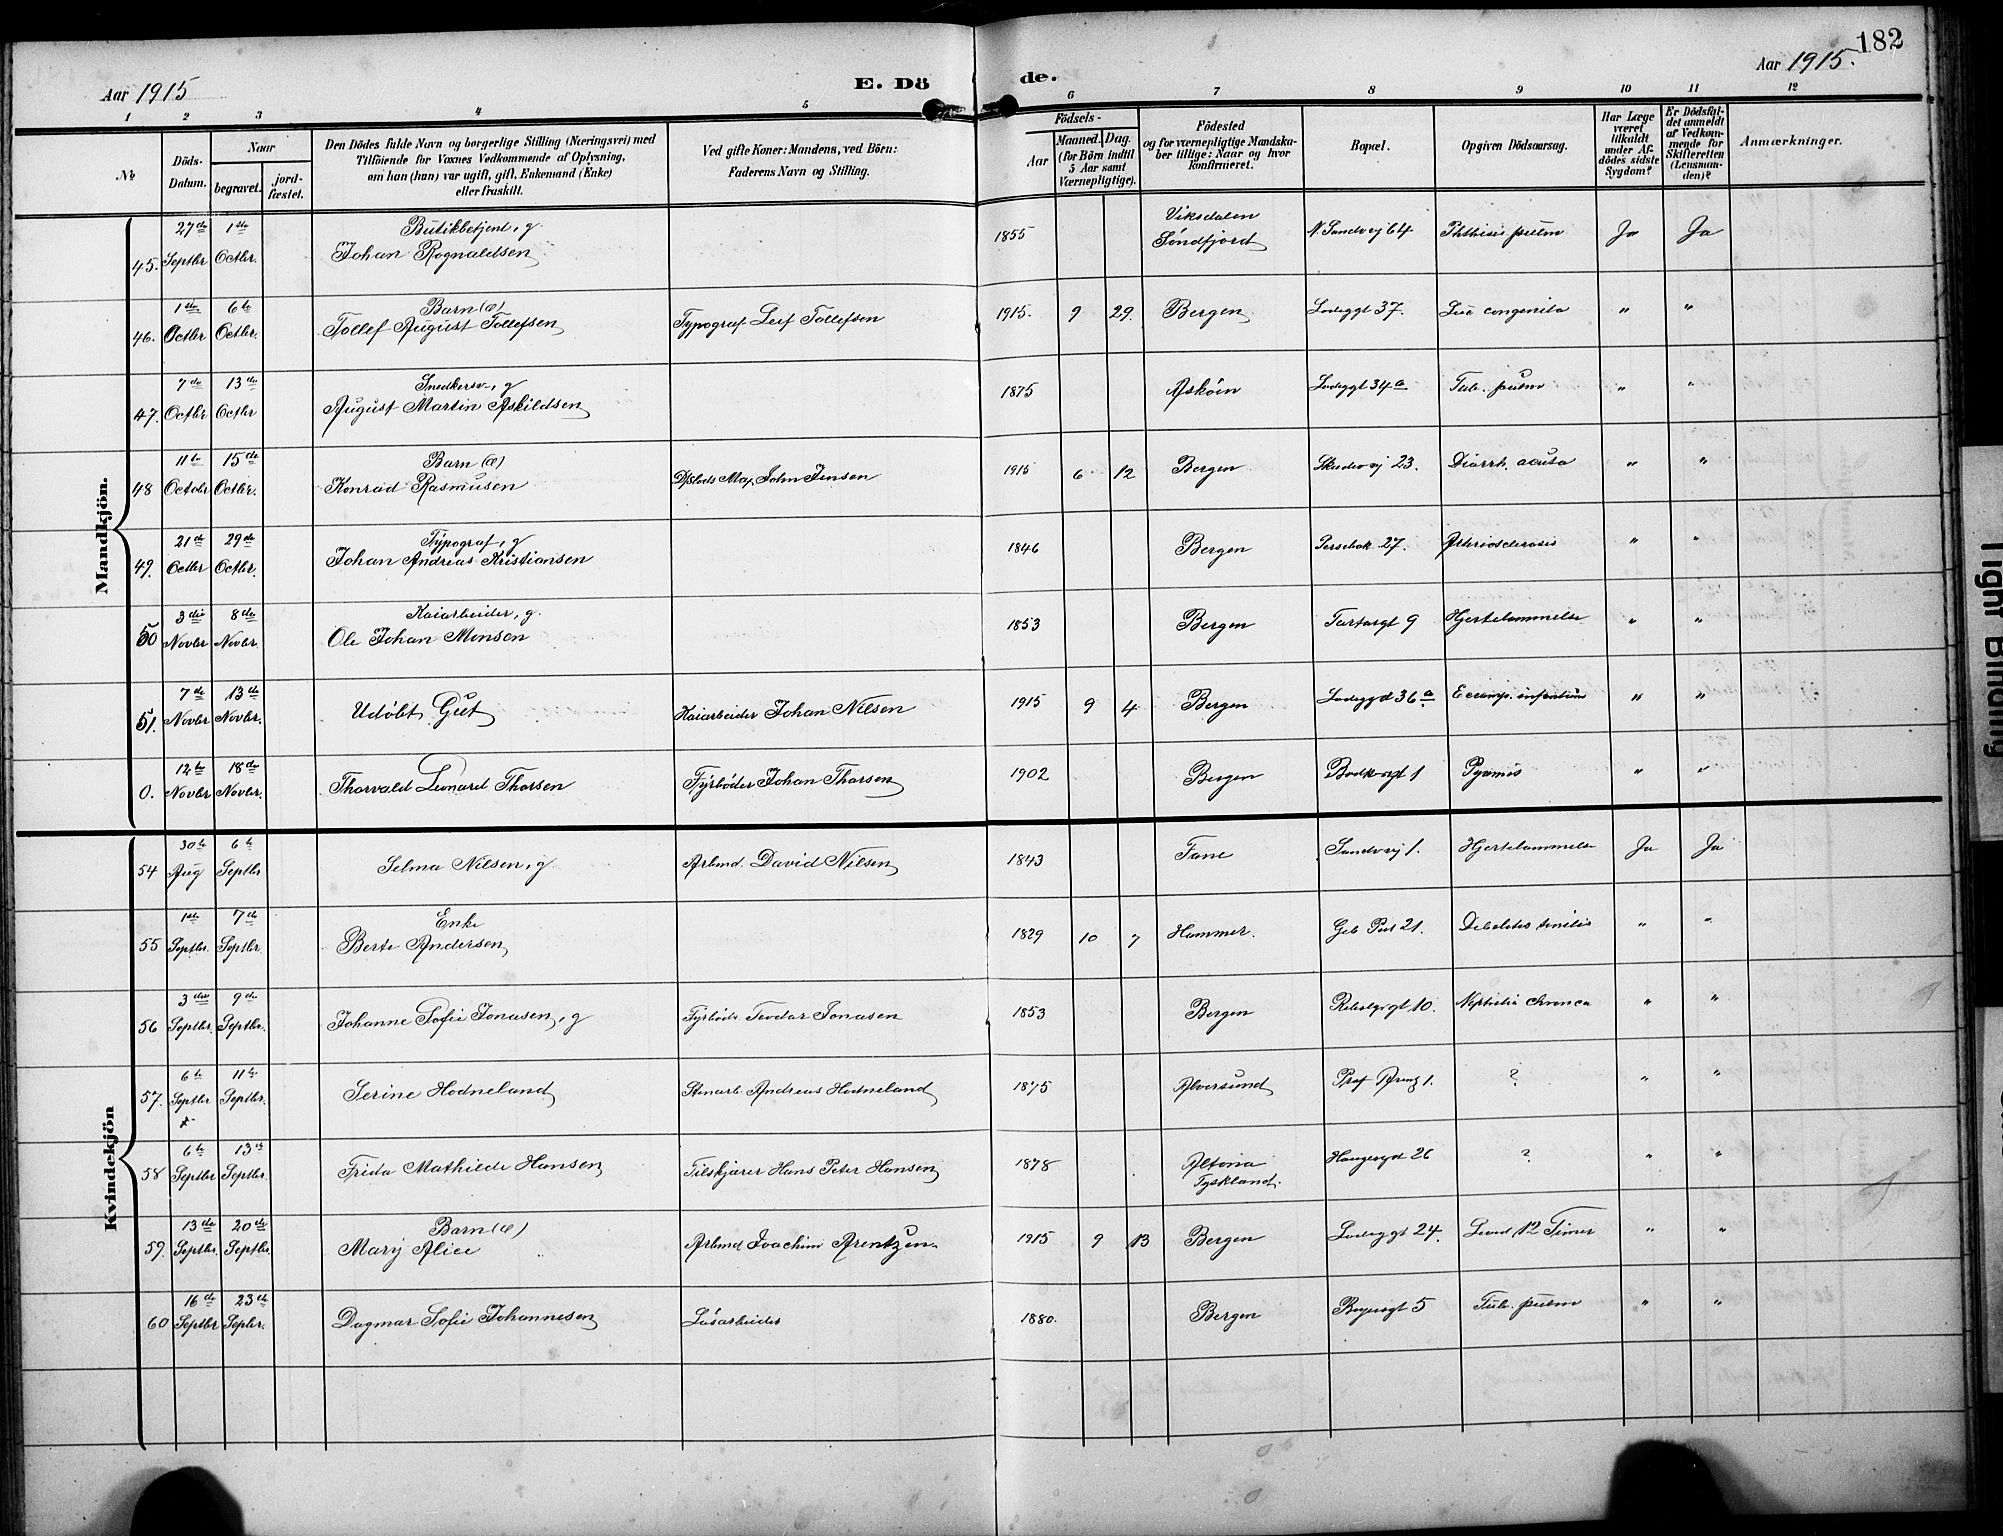 182
Aar 1915
E. Dö de.
Aar 1915.
1 2 3 4 5 6 7 8 9 10 11 12
№
Döds-Datum.
Naar
begravet.
jord-fæstet.
Den Dödes fulde Navn og borgerlige Stilling (Næringsvei) med
Tilföiende for Voxnes Vedkommende af Oplysning,
om han (hun) var ugift, gift, Enkemand (Enke)
eller fraskilt.
Ved gifte Koner: Mandens, ved Börn:
Faderens Navn og Stilling.
Födsels-
Aar
Maaned. Dag.
(for Börn indtil
5 Aar samt
Værnepligtige).
Födested
og for værnepligtige Mandska-
ber tillige: Naar og hvor
konfirmeret.
Bopæl.
Opgiven Dödsaarsag.
Har Læge
været
tilkaldt
under Af-
dödes sidste
Sygdom?
Er Dödsfal-
det anmeldt
af Vedkom-
mende for
Skifteretten
(Lensman-
den)?
Anmærkninger.
Mandkjön.
45. 27de Septbr 1ste Octbr. Butikbetjent, g Johan Rognaldsen 1855 Viksdalen Söndfjord N. Sandvej 64 Phthisis pulm Ja Ja
46. 1ste Octbr 6te Octbr. Barn (æ) Tollef August Tollefsen Typograf Leif Tollefsen 1915. 9 29. Bergen 37. Lue congenita " "
47. 7de Octbr 13de Octbr Snedkersv., g August Martin Askildsen 1875 Askøen 34a Tub. pulm " "
48 11te Octobr 15de Octbr. Barn (æ) Konrad Rasmusen John Jensen 1915 6 12 Bergen 23. Diarrh. acuta " "
49. 21de Octbr 29de Octbr. Typograf, g Johan Andreas Kristiansen 1846 Bergen 27. " "
50 3die Novbr 8de Novbr. Kaiarbeider, g. Ole Johan Monsen 1853 Bergen Tartargt 9 Hjertelammelse " "
51. 7de Novbr 13de Novbr. Udöbt Gut Kaiarbeider Johan Nilsen 1915 9 4 Bergen 36a infantum " "
0. 12te Novbr 18de Novbr. Thorvald Leonard Thorsen Fyrböder Johan Thorsen 1902 Bergen 1 Pyæmis " "
Kvindekjön
54 30te Aug 6te Septbr Selma Nilsen, g Arbmd. David Nilsen 1843 Fane Sandvej 1. Hjertelammelse Ja Ja
55 1ste Septbr. 7de Septbr. Enke Berte Andersen 1829 10 7 Hammer. 21. " "
56 3die Septbr. 9de Septbr. Johanne Sofie Jonasen, g Fyrbödr. Teodor Jonasen 1853 Bergen 10. " "
57. 6te Septbr 11te Septbr. Serine Hodneland Stenarb. Andreas Hodneland 1875 Alversund 1. ? " "
58 6te Septbr 13de Septbr. Frida Mathilde Hansen Hans Peter Hansen 1878 Altona Tyskland. 26 ? " "
59. 13de Septbr. 20de Septbr. Barn (æ) Mary Alice " Arbmd Joachim Arentzen. 1915 9 13 Bergen 24. Levend 12 Timer " "
60 16de Septbr 23de Septbr. Dagmar Sofie Johannesen Løsarbeider 1880. Bergen 5 Tub. pulm " "
Tight Binding